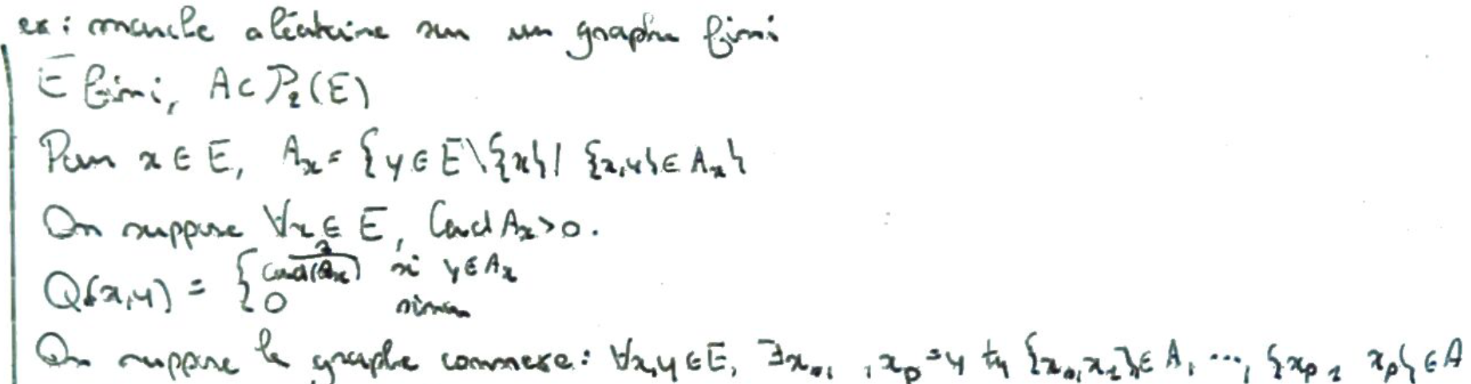 ex : marche aléatoire sur un graphe fini
E fini, A ⊂ P₂(E)
Pour x ∈ E, Aₓ = {y ∈ E\{x} | {x,y} ∈ Aₓ}
On suppose ∀x ∈ E, Card Aₓ > 0.
Q(x,y) = { 1/Card(Aₓ) si y ∈ Aₓ
0 sinon
On suppose le graphe connexe : ∀x,y ∈ E, ∃x₀, , x_p = y tq {x₀,x₁} ∈ A, ..., {x_{p-1}, x_p} ∈ A